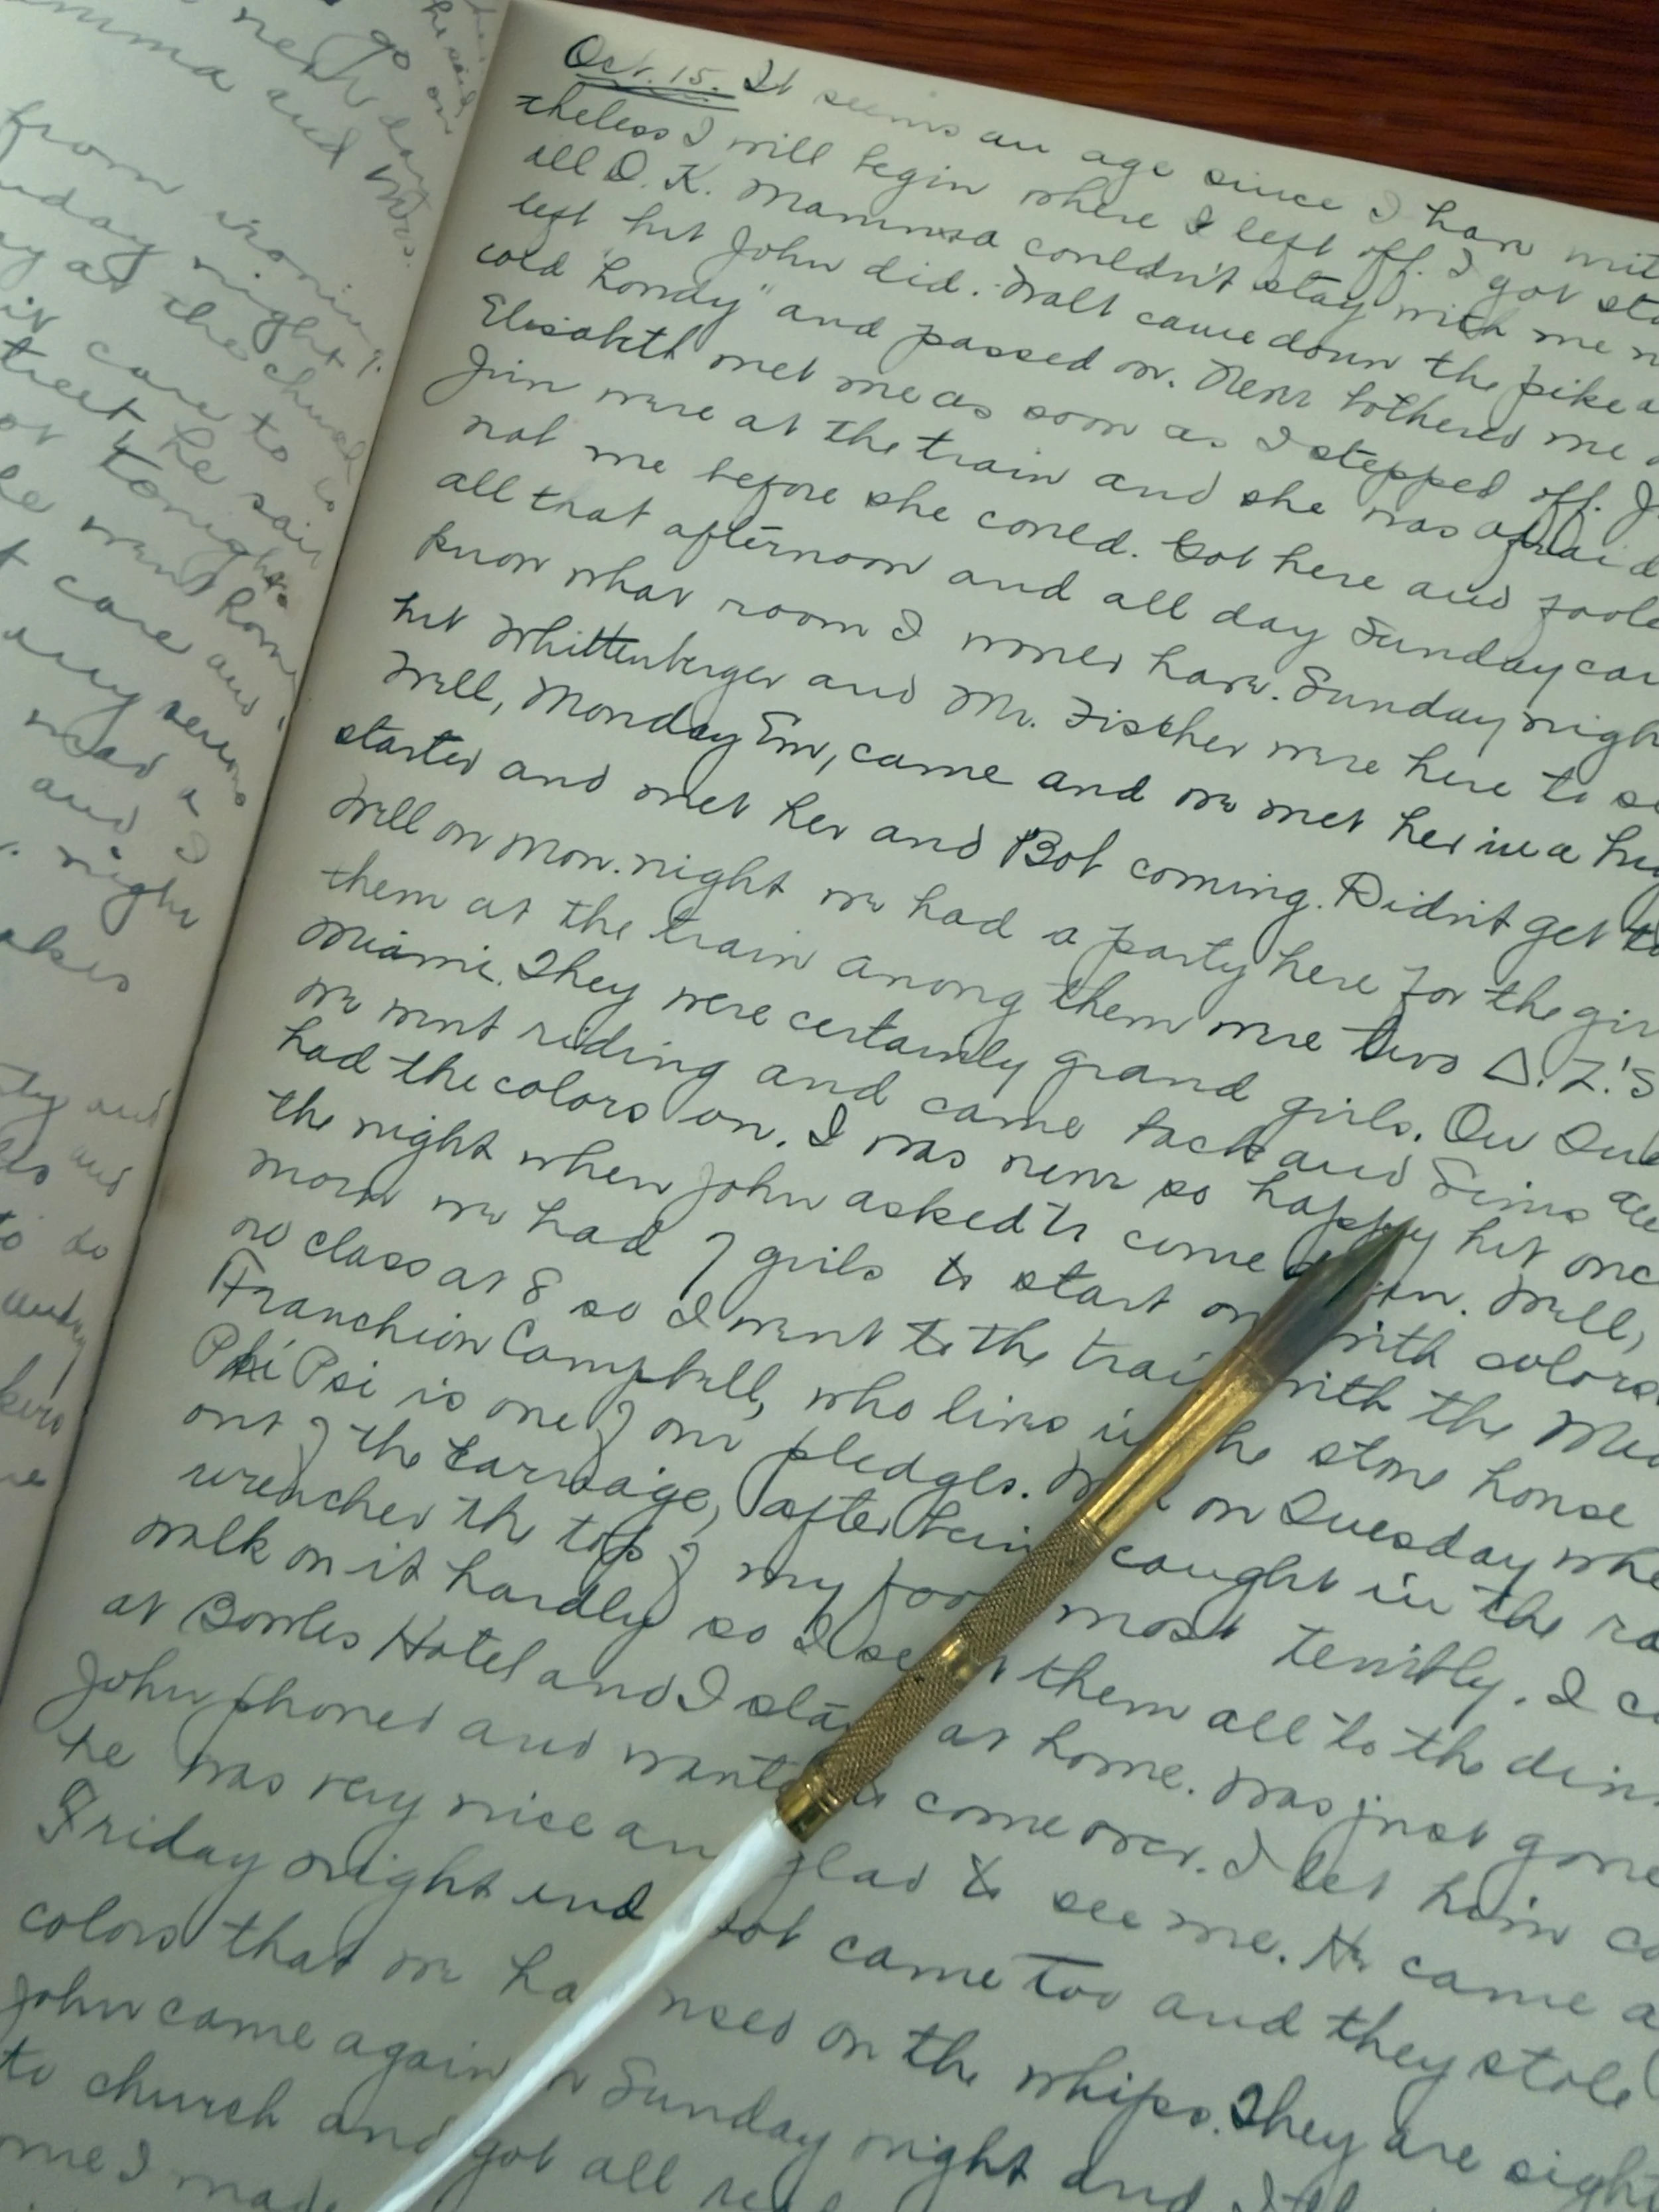 next day
go on
he said
mma and Mrs.
from ironing
nday night?
y at the church
it care to go
treet, he said
or tonight
care and
any serious
read a
and I
night
akes
ty and
les and
to do
Oct. 15. It seems an age since I have writ
theless I will begin where I left off. I got sta
all O.K. Mamma couldn't stay with me
left but John did. Walt came down the pike a
cold "howdy" and passed on. Never bothered me
Elizabeth met me as soon as I stepped off. J
Jim were at the train and she was afraid
nab me before she could. Got here and foole
all that afternoon and all day Sunday
know what room I would have. Sunday nigh
but Whittenberger and Mr. Fischer were here to se
Well, Monday Em, came and we met her in a
started and met her and Bob coming. Didn't get to
Well on Mon. night we had a party here for the gir
them at the train among them were two Δ.Z.'s
Miami. They were certainly grand girls. On Tue
we went riding and came back and Sims all
had the colors on. I was never so happy but once
the night when John asked to come. Well,
morn we had 7 girls to start on with colors
no class at 8 so I went to the train with the
Franchion Campbell, who lives in the stone house
Phi Psi is one of our pledges. on Tuesday whe
out of the carriage, after being caught in the ra
wrenched the top of my foot most terribly. I c
walk on it hardly so I sent them all to the dinn
at Bowles Hotel and I stayed at home. Was just gone
John phoned and wanted to come over. I let him co
he was very nice and glad to see me. He came a
Friday night and Bob came too and they stole
colors that we had used on the whips. They are sight
John came again on Sunday night and
to church and got all
me I made